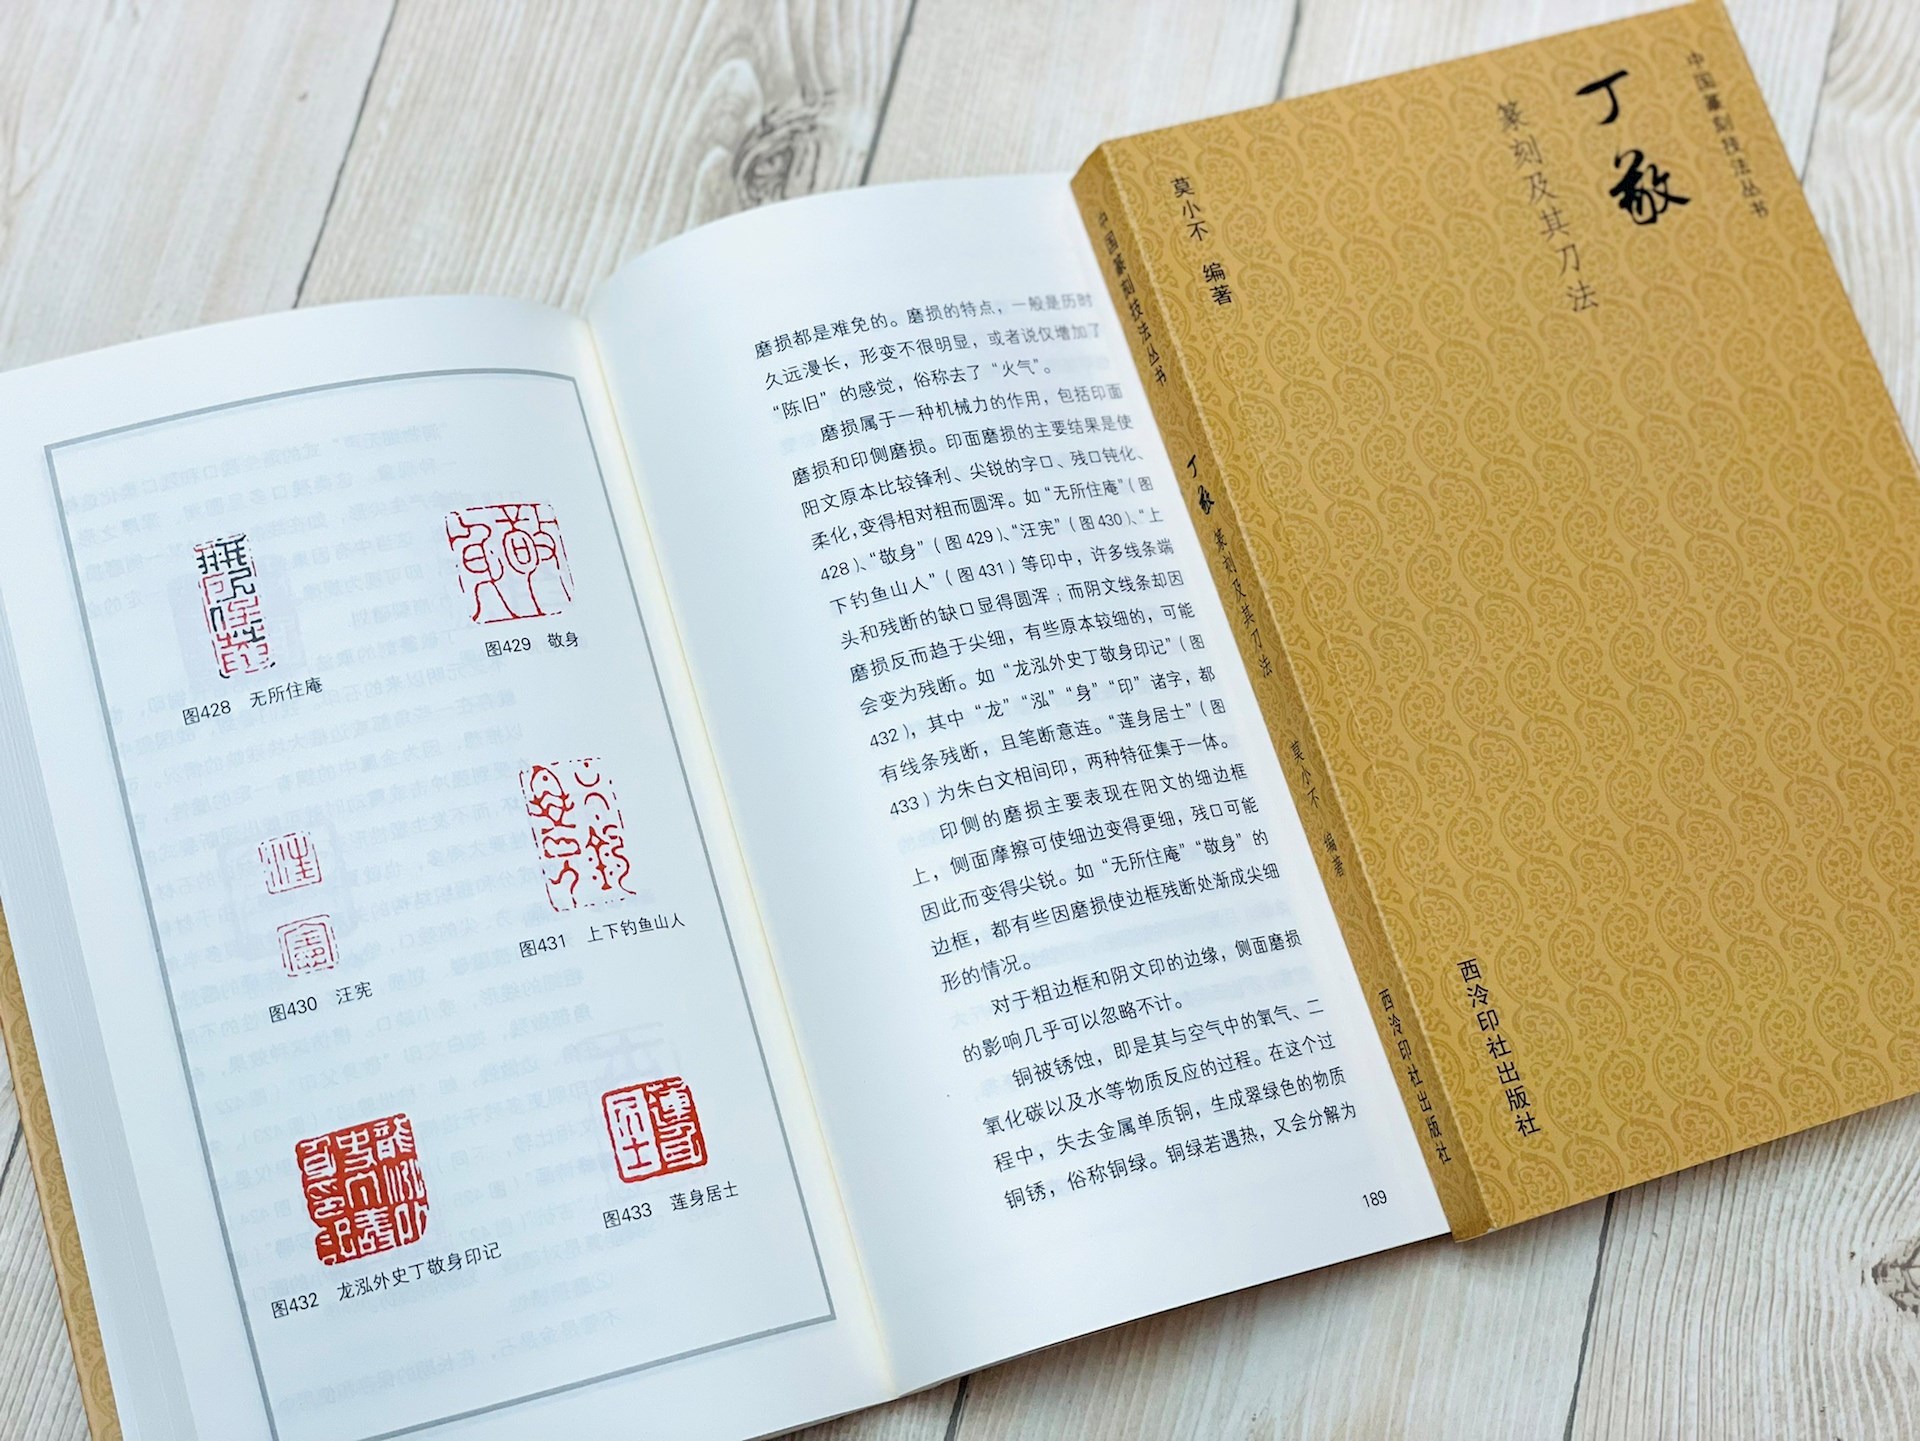 图428 无所住庵
图429 敬身
图430 汪宪
图431 上下钓鱼山人
图432 龙泓外史丁敬身印记
图433 莲身居士
磨损都是难免的。磨损的特点，一般是历时
久远漫长，形变不很明显，或者说仅增加了
“陈旧”的感觉，俗称去了“火气”。
磨损属于一种机械力的作用，包括印面
磨损和印侧磨损。印面磨损的主要结果是使
阳文原本比较锋利、尖锐的字口、残口钝化、
柔化，变得相对粗而圆浑。如“无所住庵”（图
428）、“敬身”（图429）、“汪宪”（图430）、“上
下钓鱼山人”（图431）等印中，许多线条端
头和残断的缺口显得圆浑；而阴文线条却因
磨损反而趋于尖细，有些原本较细的，可能
会变为残断。如“龙泓外史丁敬身印记”（图
432），其中“龙”“泓”“身”“印”诸字，都
有线条残断，且笔断意连。“莲身居士”（图
433）为朱白文相间印，两种特征集于一体。
印侧的磨损主要表现在阳文的细边框
上，侧面摩擦可使细边变得更细，残口可能
因此而变得尖锐。如“无所住庵”“敬身”的
边框，都有些因磨损使边框残断处渐成尖细
形的情况。
对于粗边框和阴文印的边缘，侧面磨损
的影响几乎可以忽略不计。
铜被锈蚀，即是其与空气中的氧气、二
氧化碳以及水等物质反应的过程。在这个过
程中，失去金属单质铜，生成翠绿色的物质
铜锈，俗称铜绿。铜绿若遇热，又会分解为
189
中国篆刻技法丛书
丁敬 篆刻及其刀法
莫小不 编著
西泠印社出版社
中国篆刻技法丛书
丁敬
篆刻及其刀法
莫小不 编著
西泠印社出版社